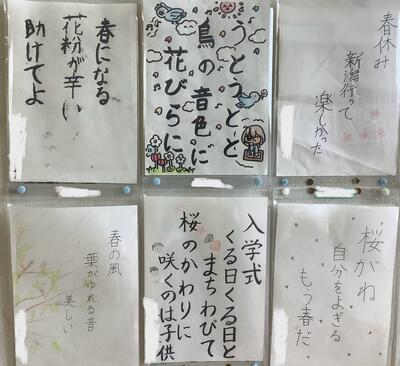 春休み
新潟行って
楽しかった
うとうとと
鳥の音色に
花びらに
春になる
花粉が辛い
助けてよ
桜がね
自分をよぎる
もう春だ
入学式
くる日くる日と
まちわびて
桜のかわりに
咲くのは子供
春の風
葉がゆれる音
美しい